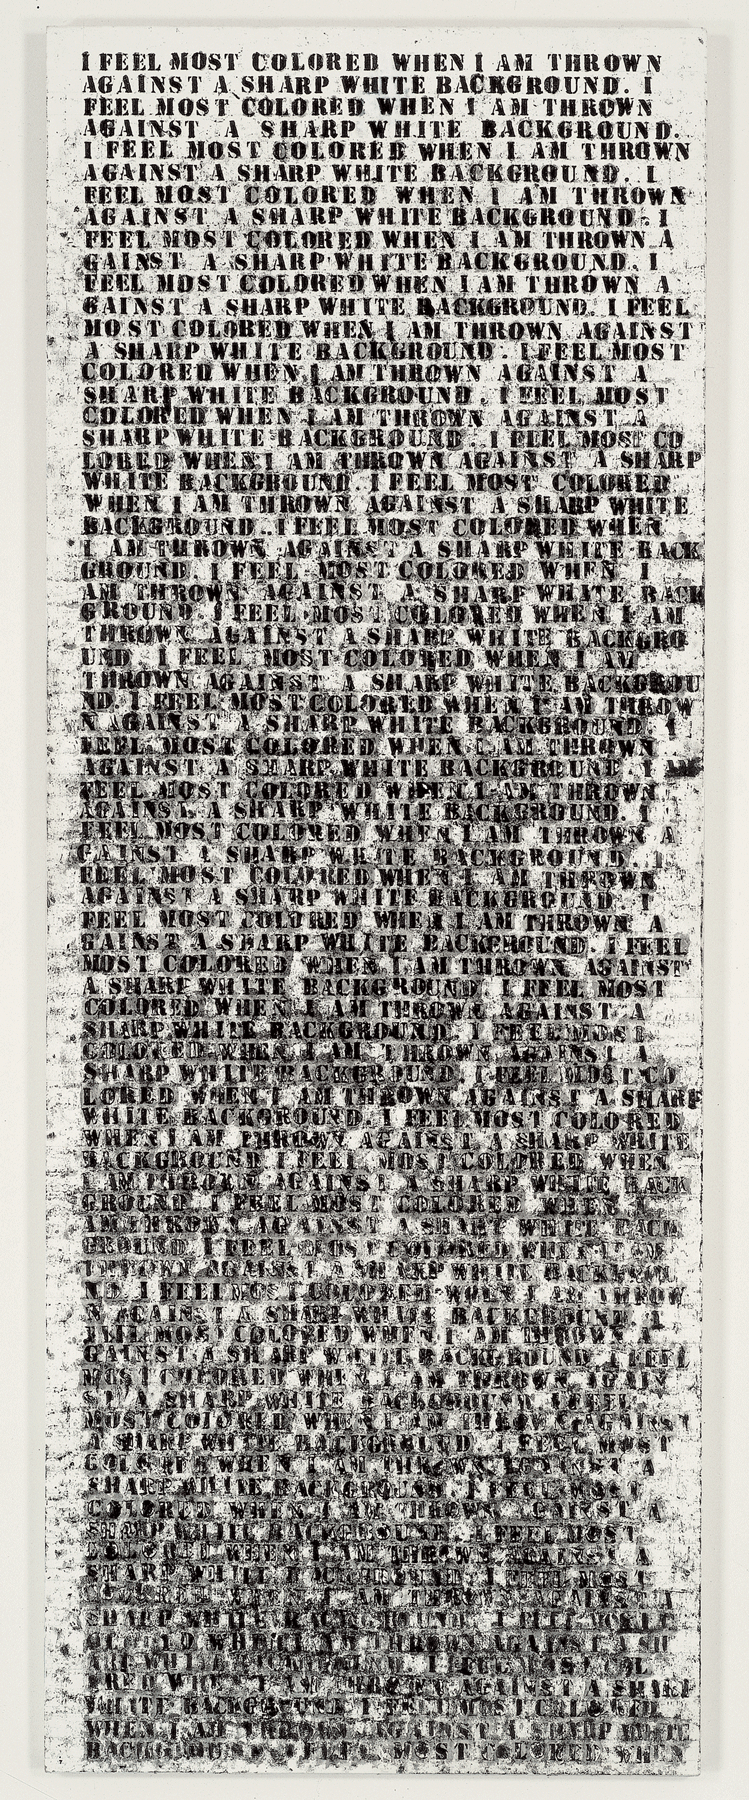 I FEEL MOST COLORED WHEN I AM THROWN
AGAINST A SHARP WHITE BACKGROUND. I
FEEL MOST COLORED WHEN I AM THROWN
AGAINST A SHARP WHITE BACKGROUND.
I FEEL MOST COLORED WHEN I AM THROWN
AGAINST A SHARP WHITE BACKGROUND. I
FEEL MOST COLORED WHEN I AM THROWN
AGAINST A SHARP WHITE BACKGROUND. I
FEEL MOST COLORED WHEN I AM THROWN A
GAINST A SHARP WHITE BACKGROUND. I
FEEL MOST COLORED WHEN I AM THROWN A
GAINST A SHARP WHITE BACKGROUND. I FEEL
MOST COLORED WHEN I AM THROWN AGAINST
A SHARP WHITE BACKGROUND. I FEEL MOST
COLORED WHEN I AM THROWN AGAINST A
SHARP WHITE BACKGROUND. I FEEL MOST
COLORED WHEN I AM THROWN AGAINST A
SHARP WHITE BACKGROUND. I FEEL MOST CO
LORED WHEN I AM THROWN AGAINST A SHARP
WHITE BACKGROUND. I FEEL MOST COLORED
WHEN I AM THROWN AGAINST A SHARP WHITE
BACKGROUND. I FEEL MOST COLORED WHEN
I AM THROWN AGAINST A SHARP WHITE BACK
GROUND. I FEEL MOST COLORED WHEN I
AM THROWN AGAINST A SHARP WHITE BACK
GROUND. I FEEL MOST COLORED WHEN I AM
THROWN AGAINST A SHARP WHITE BACKGRO
UND. I FEEL MOST COLORED WHEN I AM
THROWN AGAINST A SHARP WHITE BACKGROU
ND. I FEEL MOST COLORED WHEN I AM THROW
N AGAINST A SHARP WHITE BACKGROUND. I
FEEL MOST COLORED WHEN I AM THROWN
AGAINST A SHARP WHITE BACKGROUND. I
FEEL MOST COLORED WHEN I AM THROWN
AGAINST A SHARP WHITE BACKGROUND. I
FEEL MOST COLORED WHEN I AM THROWN A
GAINST A SHARP WHITE BACKGROUND. I
FEEL MOST COLORED WHEN I AM THROWN
AGAINST A SHARP WHITE BACKGROUND. I
FEEL MOST COLORED WHEN I AM THROWN A
GAINST A SHARP WHITE BACKGROUND. I FEEL
MOST COLORED WHEN I AM THROWN AGAINST
A SHARP WHITE BACKGROUND I FEEL MOST
COLORED WHEN I AM THROWN AGAINST A
SHARP WHITE BACKGROUND. I FEEL MOST
COLORED WHEN I AM THROWN AGAINST A
SHARP WHITE BACKGROUND. I FEEL MOST CO
LORED WHEN I AM THROWN AGAINST A SHARP
WHITE BACKGROUND. I FEEL MOST COLORED
WHEN I AM THROWN AGAINST A SHARP WHITE
BACKGROUND I FEEL MOST COLORED WHEN
I AM THROWN AGAINST A SHARP WHITE BACK
GROUND I FEEL MOST COLORED WHEN I
AM THROWN AGAINST A SHARP WHITE BACK
GROUND I FEEL MOST COLORED WHEN I AM
THROWN AGAINST A SHARP WHITE BACKGROU
ND. I FEEL MOST COLORED WHEN I AM THROW
N AGAINST A SHARP WHITE BACKGROUND. I
FEEL MOST COLORED WHEN I AM THROWN A
GAINST A SHARP WHITE BACKGROUND I FEEL
MOST COLORED WHEN I AM THROWN AGAIN
ST A SHARP WHITE BACKGROUND I FEEL
MOST COLORED WHEN I AM THROWN AGAINST
A SHARP WHITE BACKGROUND I FEEL MOST
COLORED WHEN I AM THROWN AGAINST A
SHARP WHITE BACKGROUND I FEEL MOST
COLORED WHEN I AM THROWN AGAINST A
SHARP WHITE BACKGROUND I FEEL MOST
COLORED WHEN I AM THROWN AGAINST A
SHARP WHITE BACKGROUND I FEEL MOST
COLORED WHEN I AM THROWN AGAINST A
SHARP WHITE BACKGROUND I FEEL MOST C
OLORED WHEN I AM THROWN AGAINST A SH
ARP WHITE BACKGROUND I FEEL MOST COL
ORED WHEN I AM THROWN AGAINST A SHARP
WHITE BACKGROUND I FEEL MOST COLORED
WHEN I AM THROWN AGAINST A SHARP WHITE
BACKGROUND I FEEL MOST COLORED WHEN